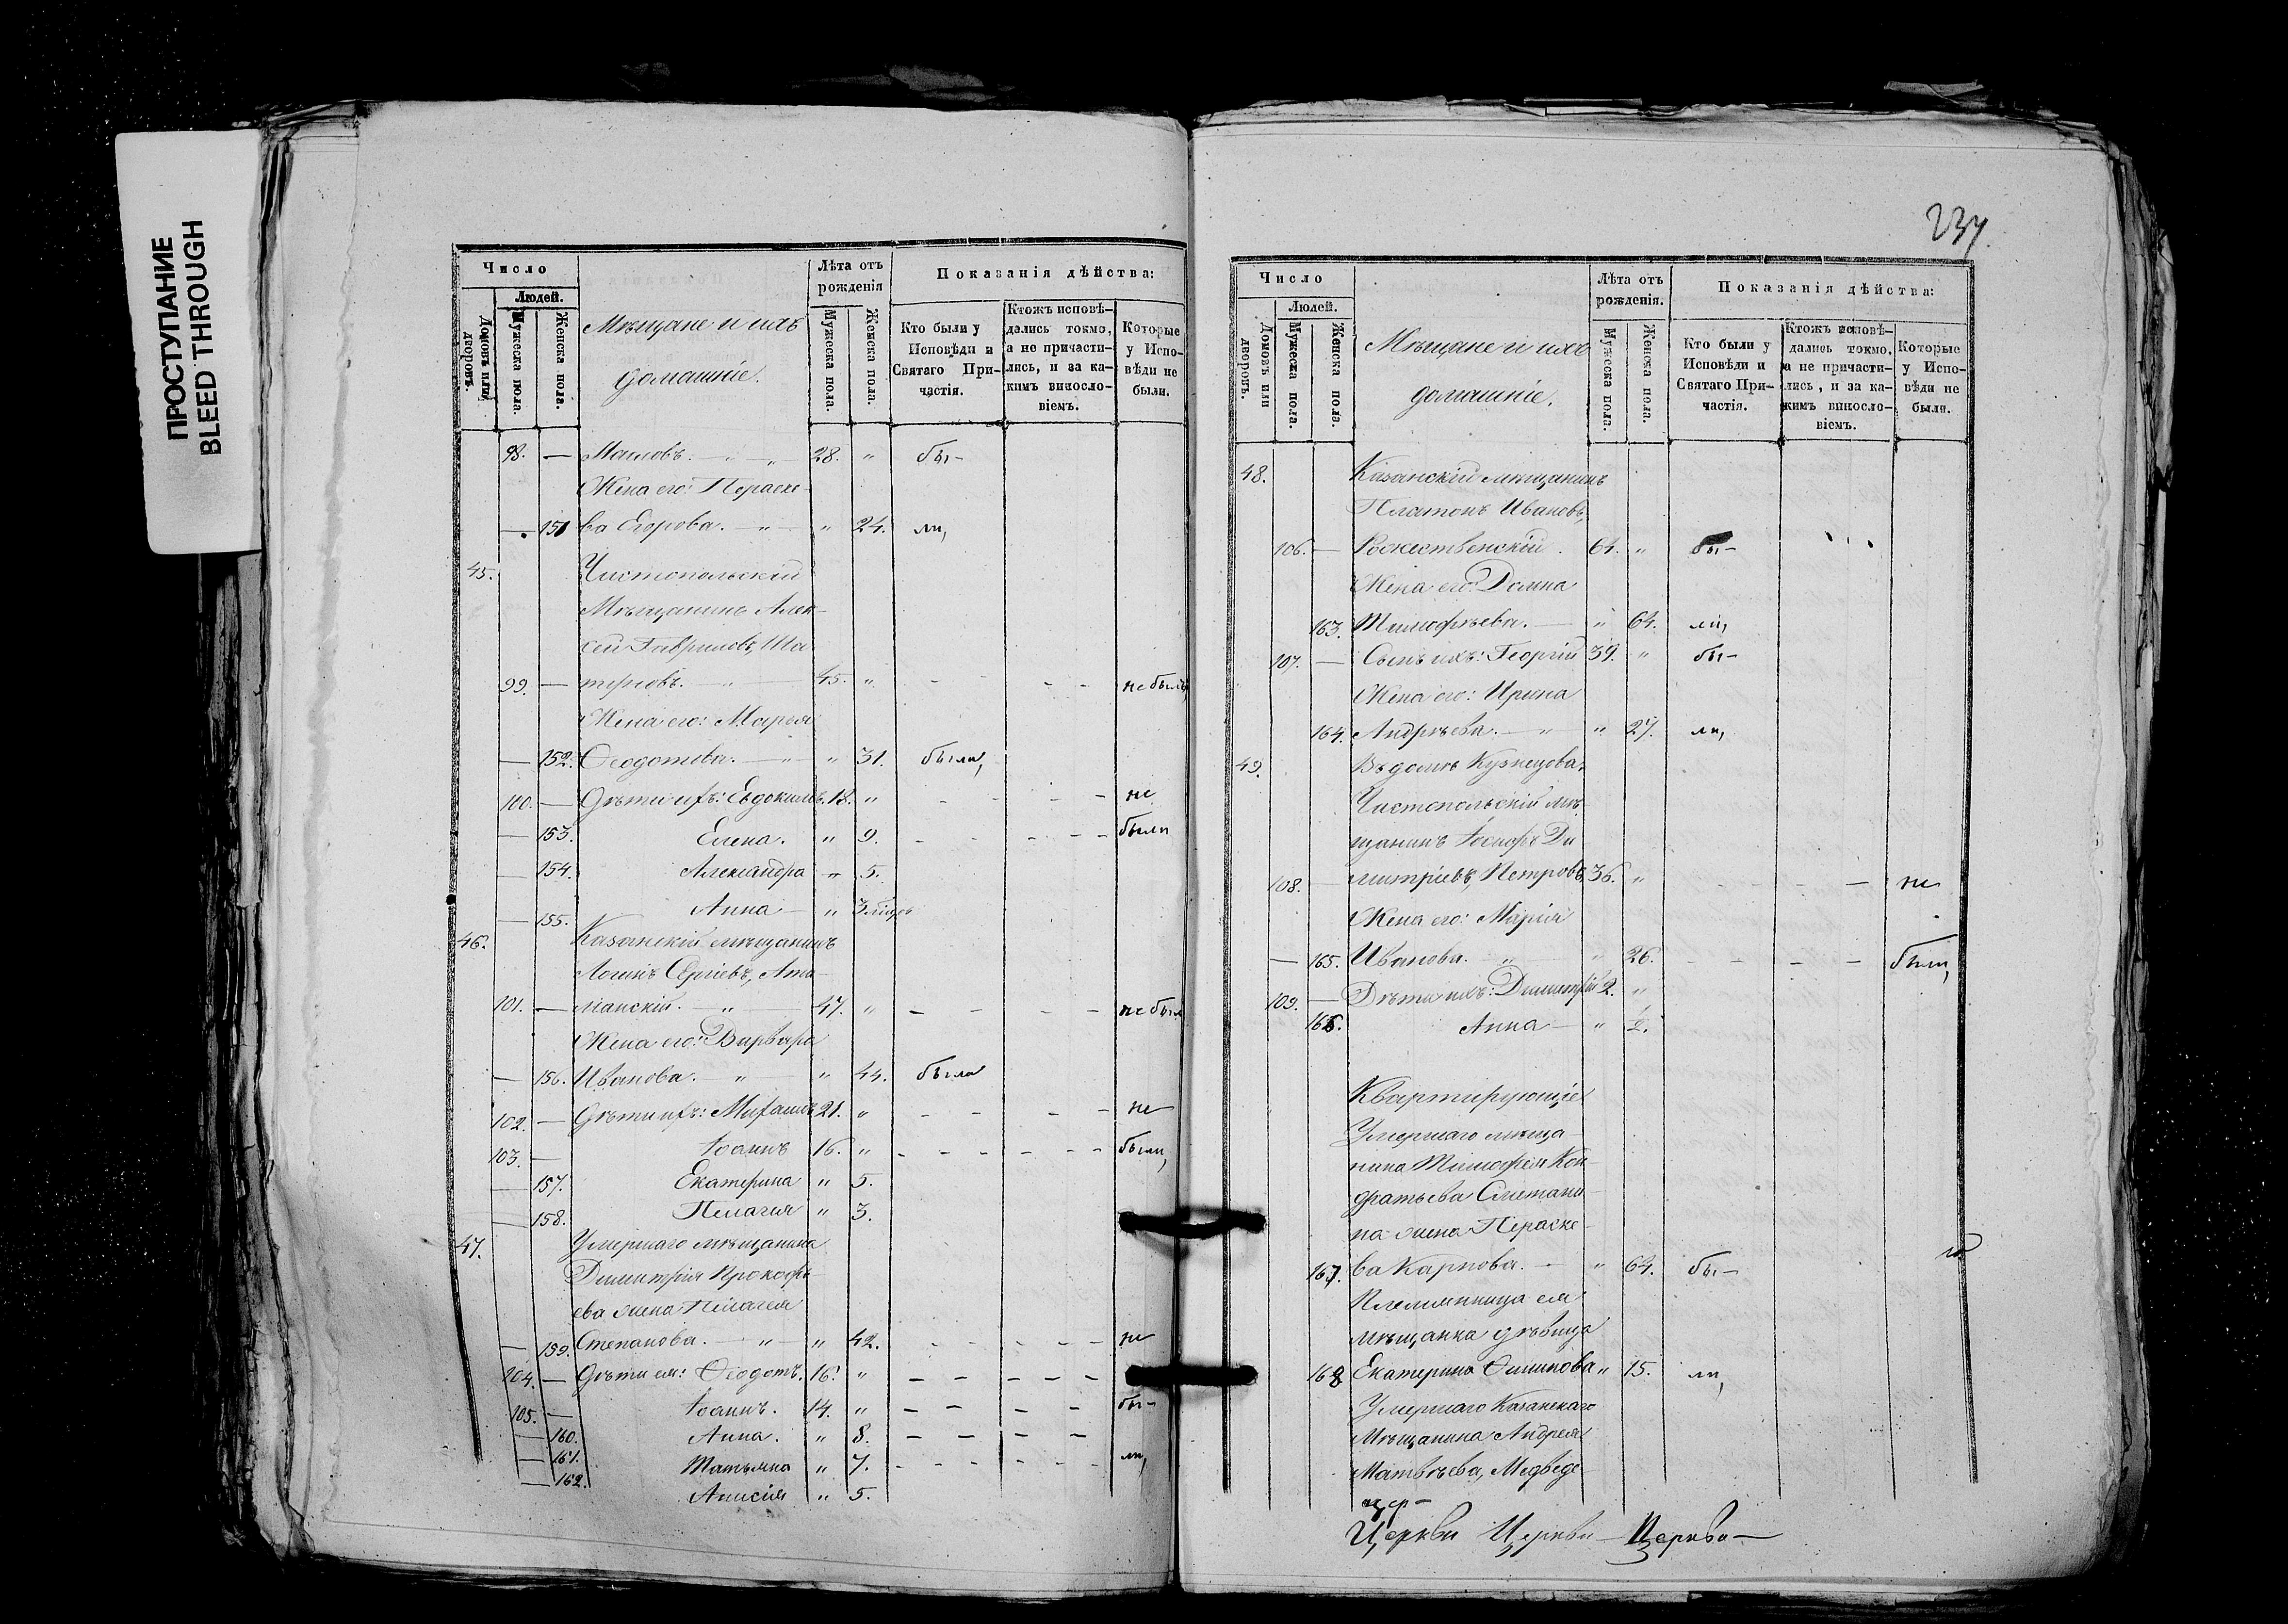 ПРОСТУПАНИЕ
BLEED THROUGH
Число
Людей.
Домовъ или дворовъ.
Мужеска пола.
Женска пола.
Мѣщане и ихъ
домашніе.
Лѣта отъ
рожденія
Мужеска пола.
Женска пола.
Показанія дѣйства:
Кто были у
Исповѣди и
Святаго При-
частія.
Ктожъ исповѣ-
дались токмо,
а не причасти-
лись, и за ка-
кимъ виносло-
віемъ.
Которые
у Испо-
вѣди не
были.
98. — 28. „ бы-
Жена его: Параске-
— 151 ва Егорова. — „ — „ 24. ли,
45. Чистопольскій
Мѣщанинъ Алек-
сѣй Гавриловъ, Ша
99. — 45. „ - - - не былъ
Жена его: Марья
— 152. Ѳеодотова. — „ — „ 31. были,
100. — Дѣти ихъ: Евдокимъ. 18. „ - - - не
— 153. Елена. „ 9. - - - - были
— 154. Александра „ 5.
— 155. Анна — „ 3
46. Казанскій мѣщанинъ
Логинъ Сергіевъ, Ата-
101. — манскій. — „ — 47. „ — - - - не был
Жена его: Варвара
— 156. Иванова. — „ — „ 44. была
102. — Дѣти ихъ: 21. „ - - - - не
103. — Іоаннъ 16. „ - - - - - - были,
— 157. Екатерина „ 5.
— 158. Пелагия „ 3.
47. Умершаго мѣщанина
Димитрія Прокофь-
ева жена Пелагея
— 159. Степанова. — „ — „ 42. - - - - не
104. — Дѣти ея: Ѳеодотъ. 16. „ — — — — —
105. — Іоаннъ. 14. „ — — — — бы-
— 160. Анна. „ 8. — — — —
— 161. Татьяна „ 7. - - - - - - ли,
— 162. Анисія „ 5.
237
Число
Людей.
Домовъ или дворовъ.
Мужеска пола.
Женска пола.
Мѣщане и ихъ
домашніе.
Лѣта отъ
рожденія.
Мужеска пола.
Женска пола.
Показанія дѣйства:
Кто были у
Исповѣди и
Святаго При-
частія.
Ктожъ исповѣ-
дались токмо,
а не причасти-
лись, и за ка-
кимъ виносло-
віемъ.
Которые
у Испо-
вѣди не
были.
48. Казанскій мѣщанинъ
Платонъ Ивановъ,
106. — Рожественскій. 64. „ бы-
Жена его: Домна
163. Тимофѣева. — „ 64. ли,
107. — Сынъ ихъ: Георгій 39. „ бы-
Жена его: Ирина
164. Андрѣева. — „ — „ 27. ли,
49. Въ домѣ Кузнецова.
Чистопольскій мѣ-
щанинъ Іосифъ Ди
108. — митріевъ, Петровъ. 36. „ - - - — не
Жена его: Марія
— 165. Иванова. — „ — „ 26. - - - — были,
109. — Дѣти ихъ: Димитрій 2. „
166. Анна — „
Квартирующіе
Умершаго мѣща-
нина Тимофея Кон-
дратьева Сметани-
на жена Параске-
167. ва Карпова. — „ 64. бы-
Племянница ея
мѣщанка дѣвица
168 Екатерина „ 15. ли,
Умершаго Казанскаго
Мѣщанина Андрея
Матвѣева, Медведе-
Церкви Церкви — Церкви —